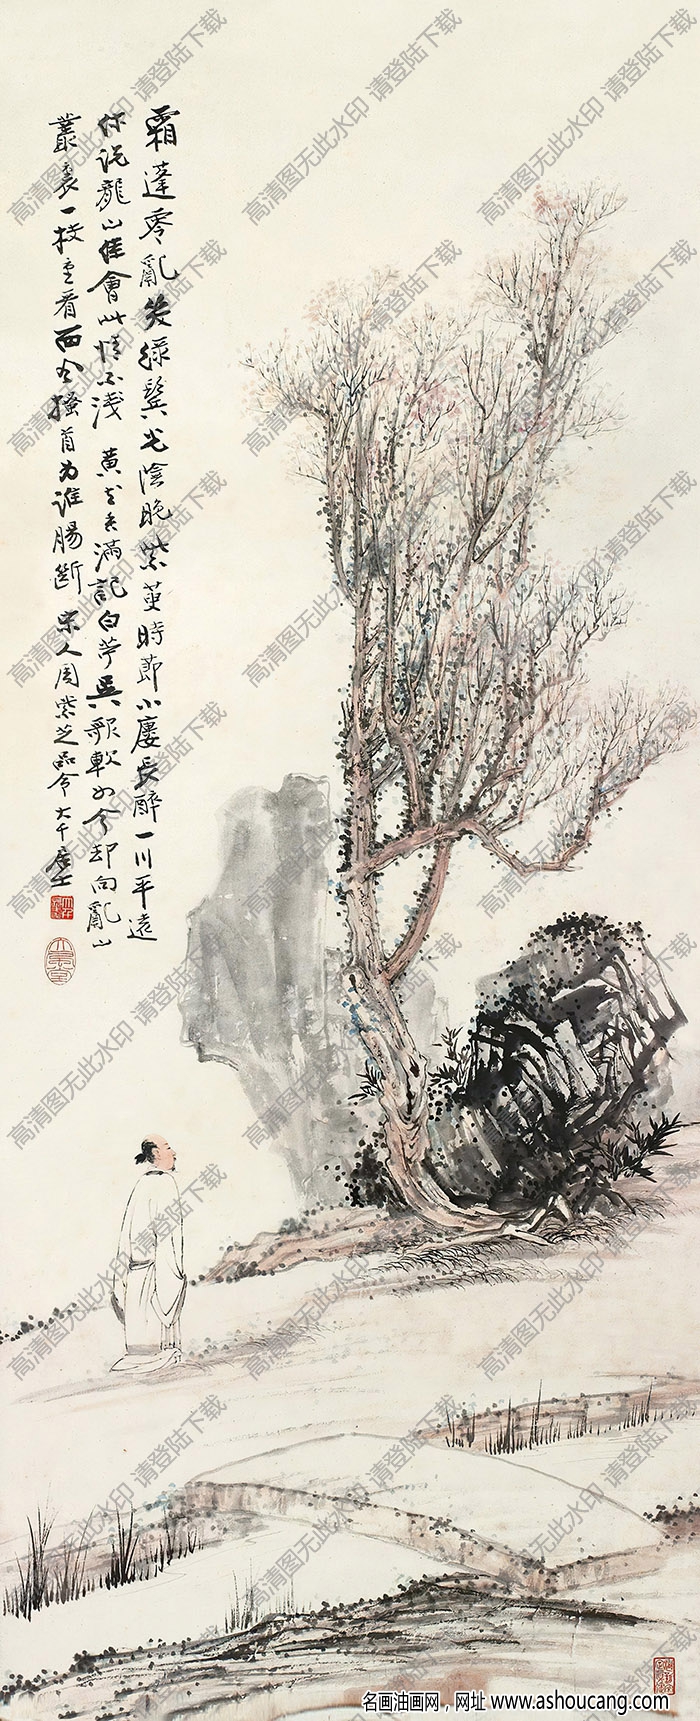 霜蓬零亂笑綠鬢光陰晚紫茰時節小廔長醉一川平遠
休説龍山佳會此情不淺 黃花香滿記白苧吳歌軟如今却向亂山
叢裏一枝重看而今搔首為誰腸斷 宋人周紫芝品令 大千居士
高清图无此水印 请登陆下载
名画油画网，网址 www.ashoucang.com